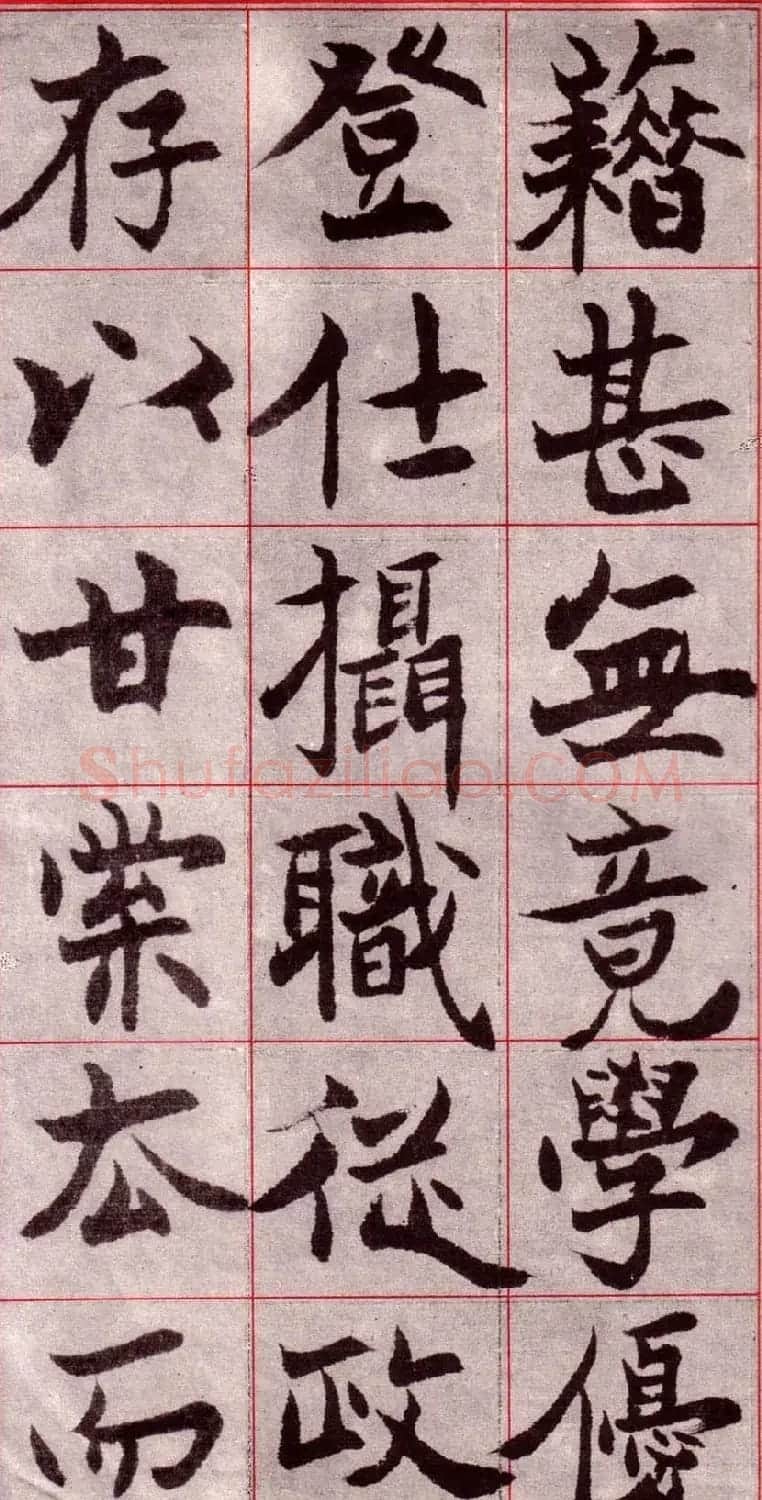 藉甚無竟學優
登仕攝職從政
存以甘棠去而
Shufaziliao.COM